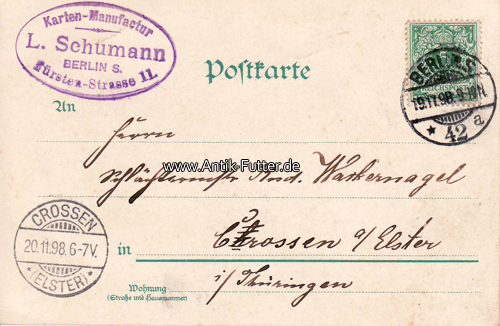 Karten-Manufactur
L. Schumann
BERLIN S.
Fürsten-Strasse 11.
Postkarte
BERLIN S.
19.11.98. 9-10N.
* 42 a.
An
Herrn
www.Antik-Futter.de
And. Wackernagel
CROSSEN
20.11.98.6-7V.
(ELSTER)
in
Crossen a/Elster
i/Thüringen
Wohnung
(Straße und Hausnummer)